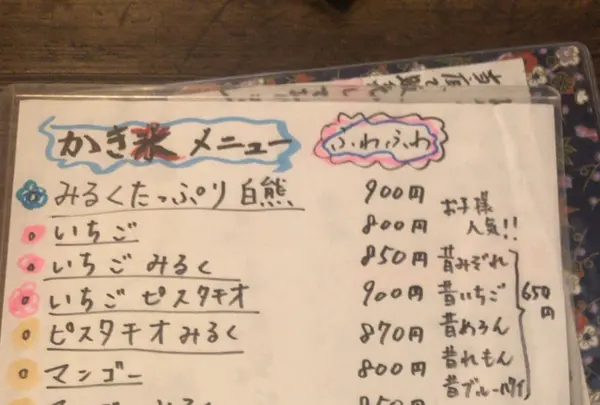 かき氷 メニュー ふわふわ
みるくたっぷり白熊 900円
いちご 800円
いちごみるく 850円
いちご ピスタチオ 900円
ピスタチオみるく 870円
マンゴー 800円
お子様
人気!!
昔みぞれ
昔いちご
昔めろん
昔れもん
昔ブルーハワイ
650円